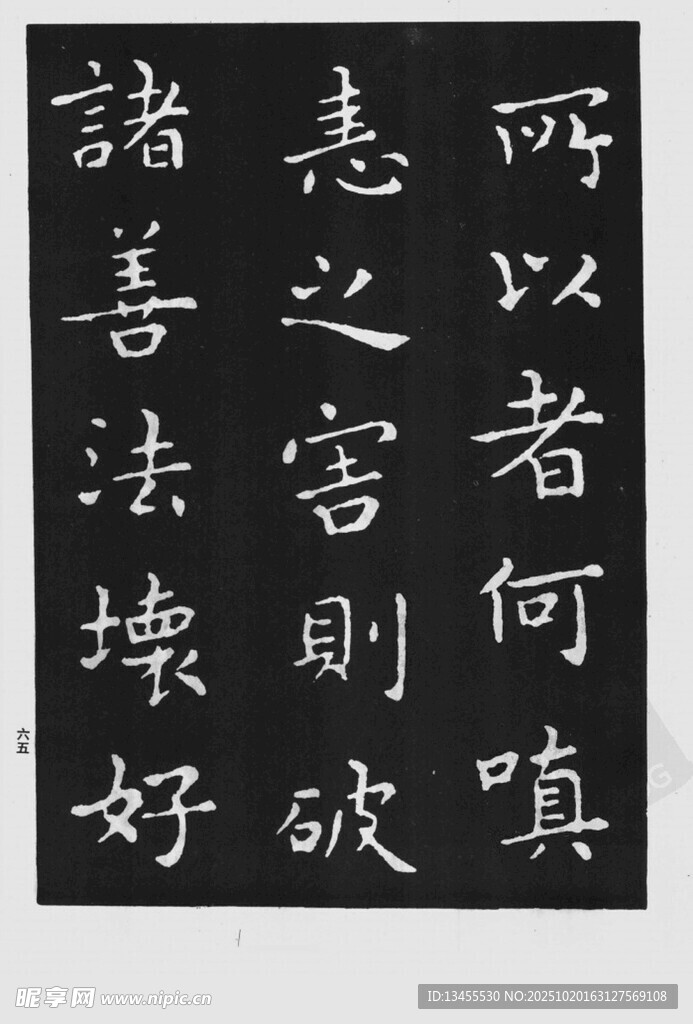 所以者何嗔
恚之害則破
諸善法壞好
六五
昵享网 www.nipic.cn
ID:13455530 NO:20251020163127569108